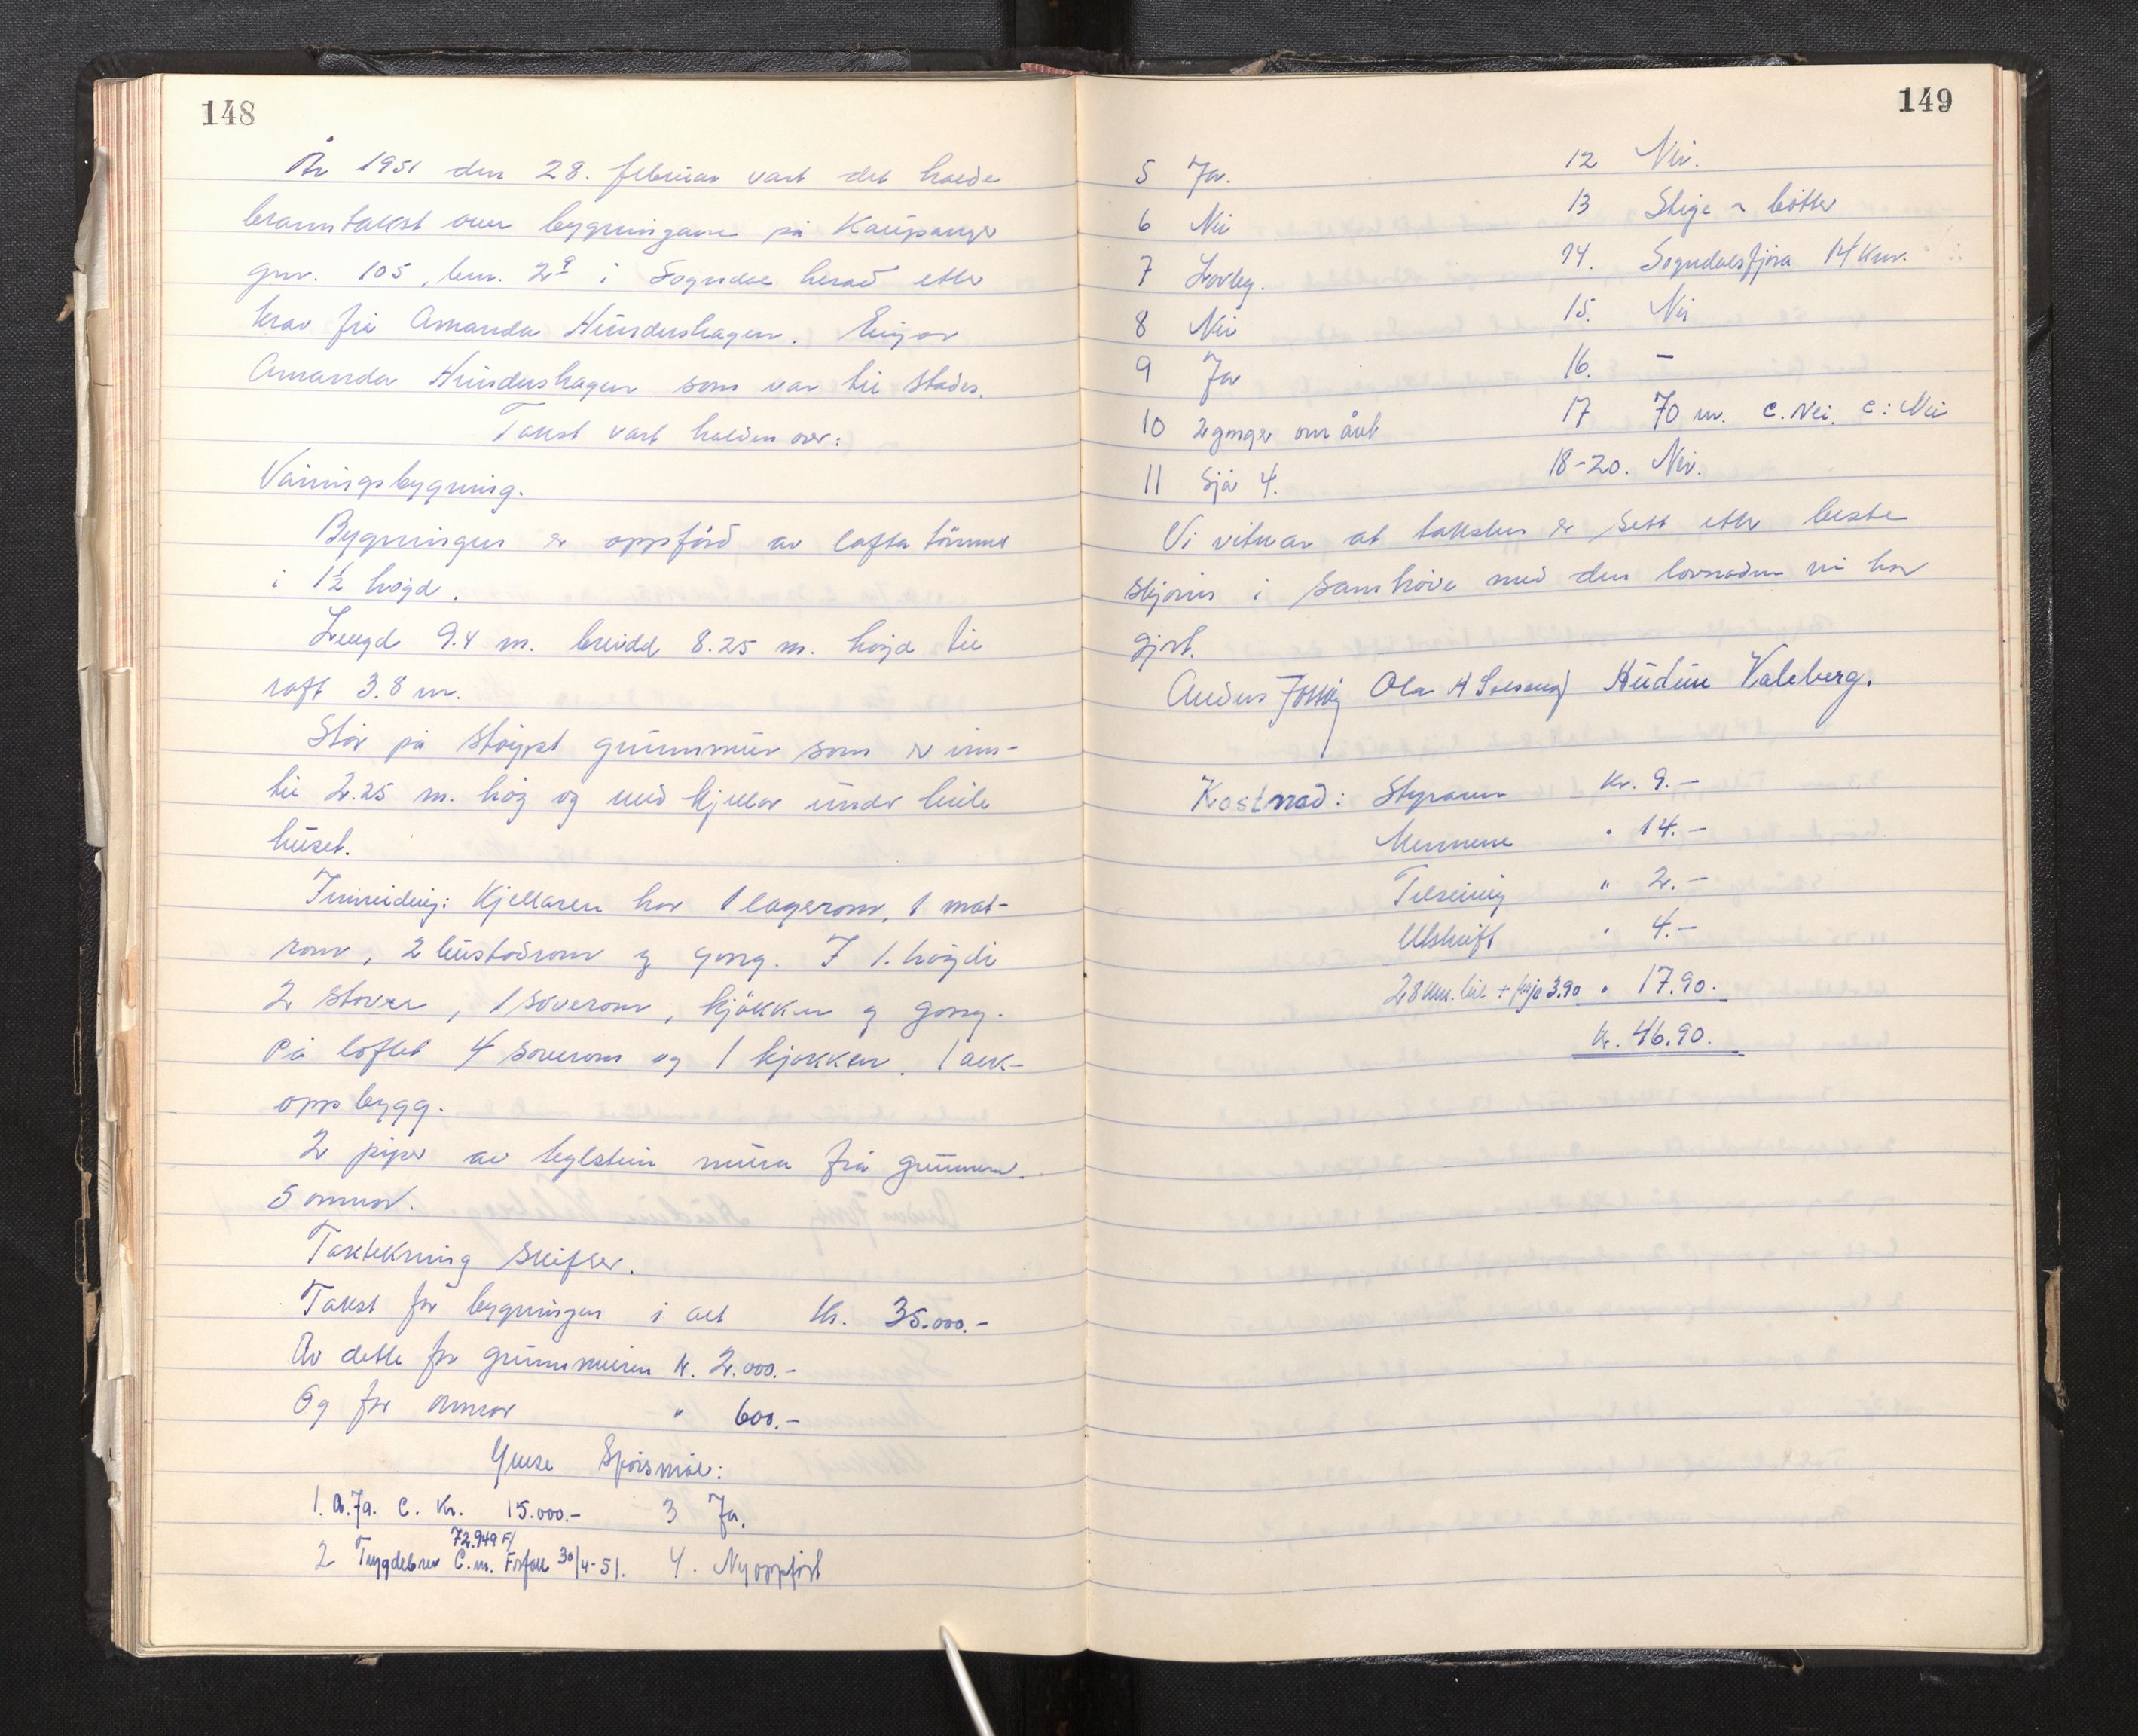 148
År 1951 den 28. februar vart det halde
branntakst over bygningane på Kaupanger
gnr. 105, bnr. 29 i Sogndal herad etter
krav frå Amanda Hundershagen. Eigar
Amanda Hundershagen som var til stades.
Takst vart halden over:
Våningsbygning.
Bygningen er oppförd av lafta tömmer
i 1½ högd.
Lengd 9.4 m. breidd 8.25 m. högd til
raft 3.8 m.
Står på stöypt grunnmur som er inn-
til 2.25 m. hög og med kjellar under heile
huset.
Innreiding: Kjellaren har 1 lagerom, 1 mat-
rom, 2 bustadrom og gong. I 1. högdi
2 stover, 1 soverom, kjökken og gong.
På loftet 4 soverom og 1 kjøkken. 1 ark-
oppbygg.
2 piper av teglstein mura frå grunnen.
5 omnar.
Taktekning skifer.
Takst for bygningen i alt kr. 35.000.-
Av dette for grunnmuren kr. 2.000.-
Og for omnar " 600.-
Ymse Spörsmål:
1. a. Ja. c. Kr. 15.000.- 3 Ja.
72.949 F/
2 Trygdebrev C.m. Forfall 30/4-51. 4. Nyoppfört
149
5 Ja. 12 Nei.
6 Nei 13 Stige og bötter
7 Lovleg. 14. Sogndalsfjöra 14 km.
8 Nei 15. Nei
9 Ja 16. –
10 2 gonger om året 17 70 m. c. Nei. e: Nei
11 Sjå 4. 18-20. Nei.
Vi vitnar at taksten er sett etter beste
skjönn i samhöve med den lovnaden vi har
gjort.
Ola H Hudun Valeberg.
Kostnad: Styraren Kr. 9.-
Mennene " 14.-
Tilseiing " 2.-
Utskrift " 4.-
28 km. bil + ferje 3.90 " 17.90.
Kr. 46.90.